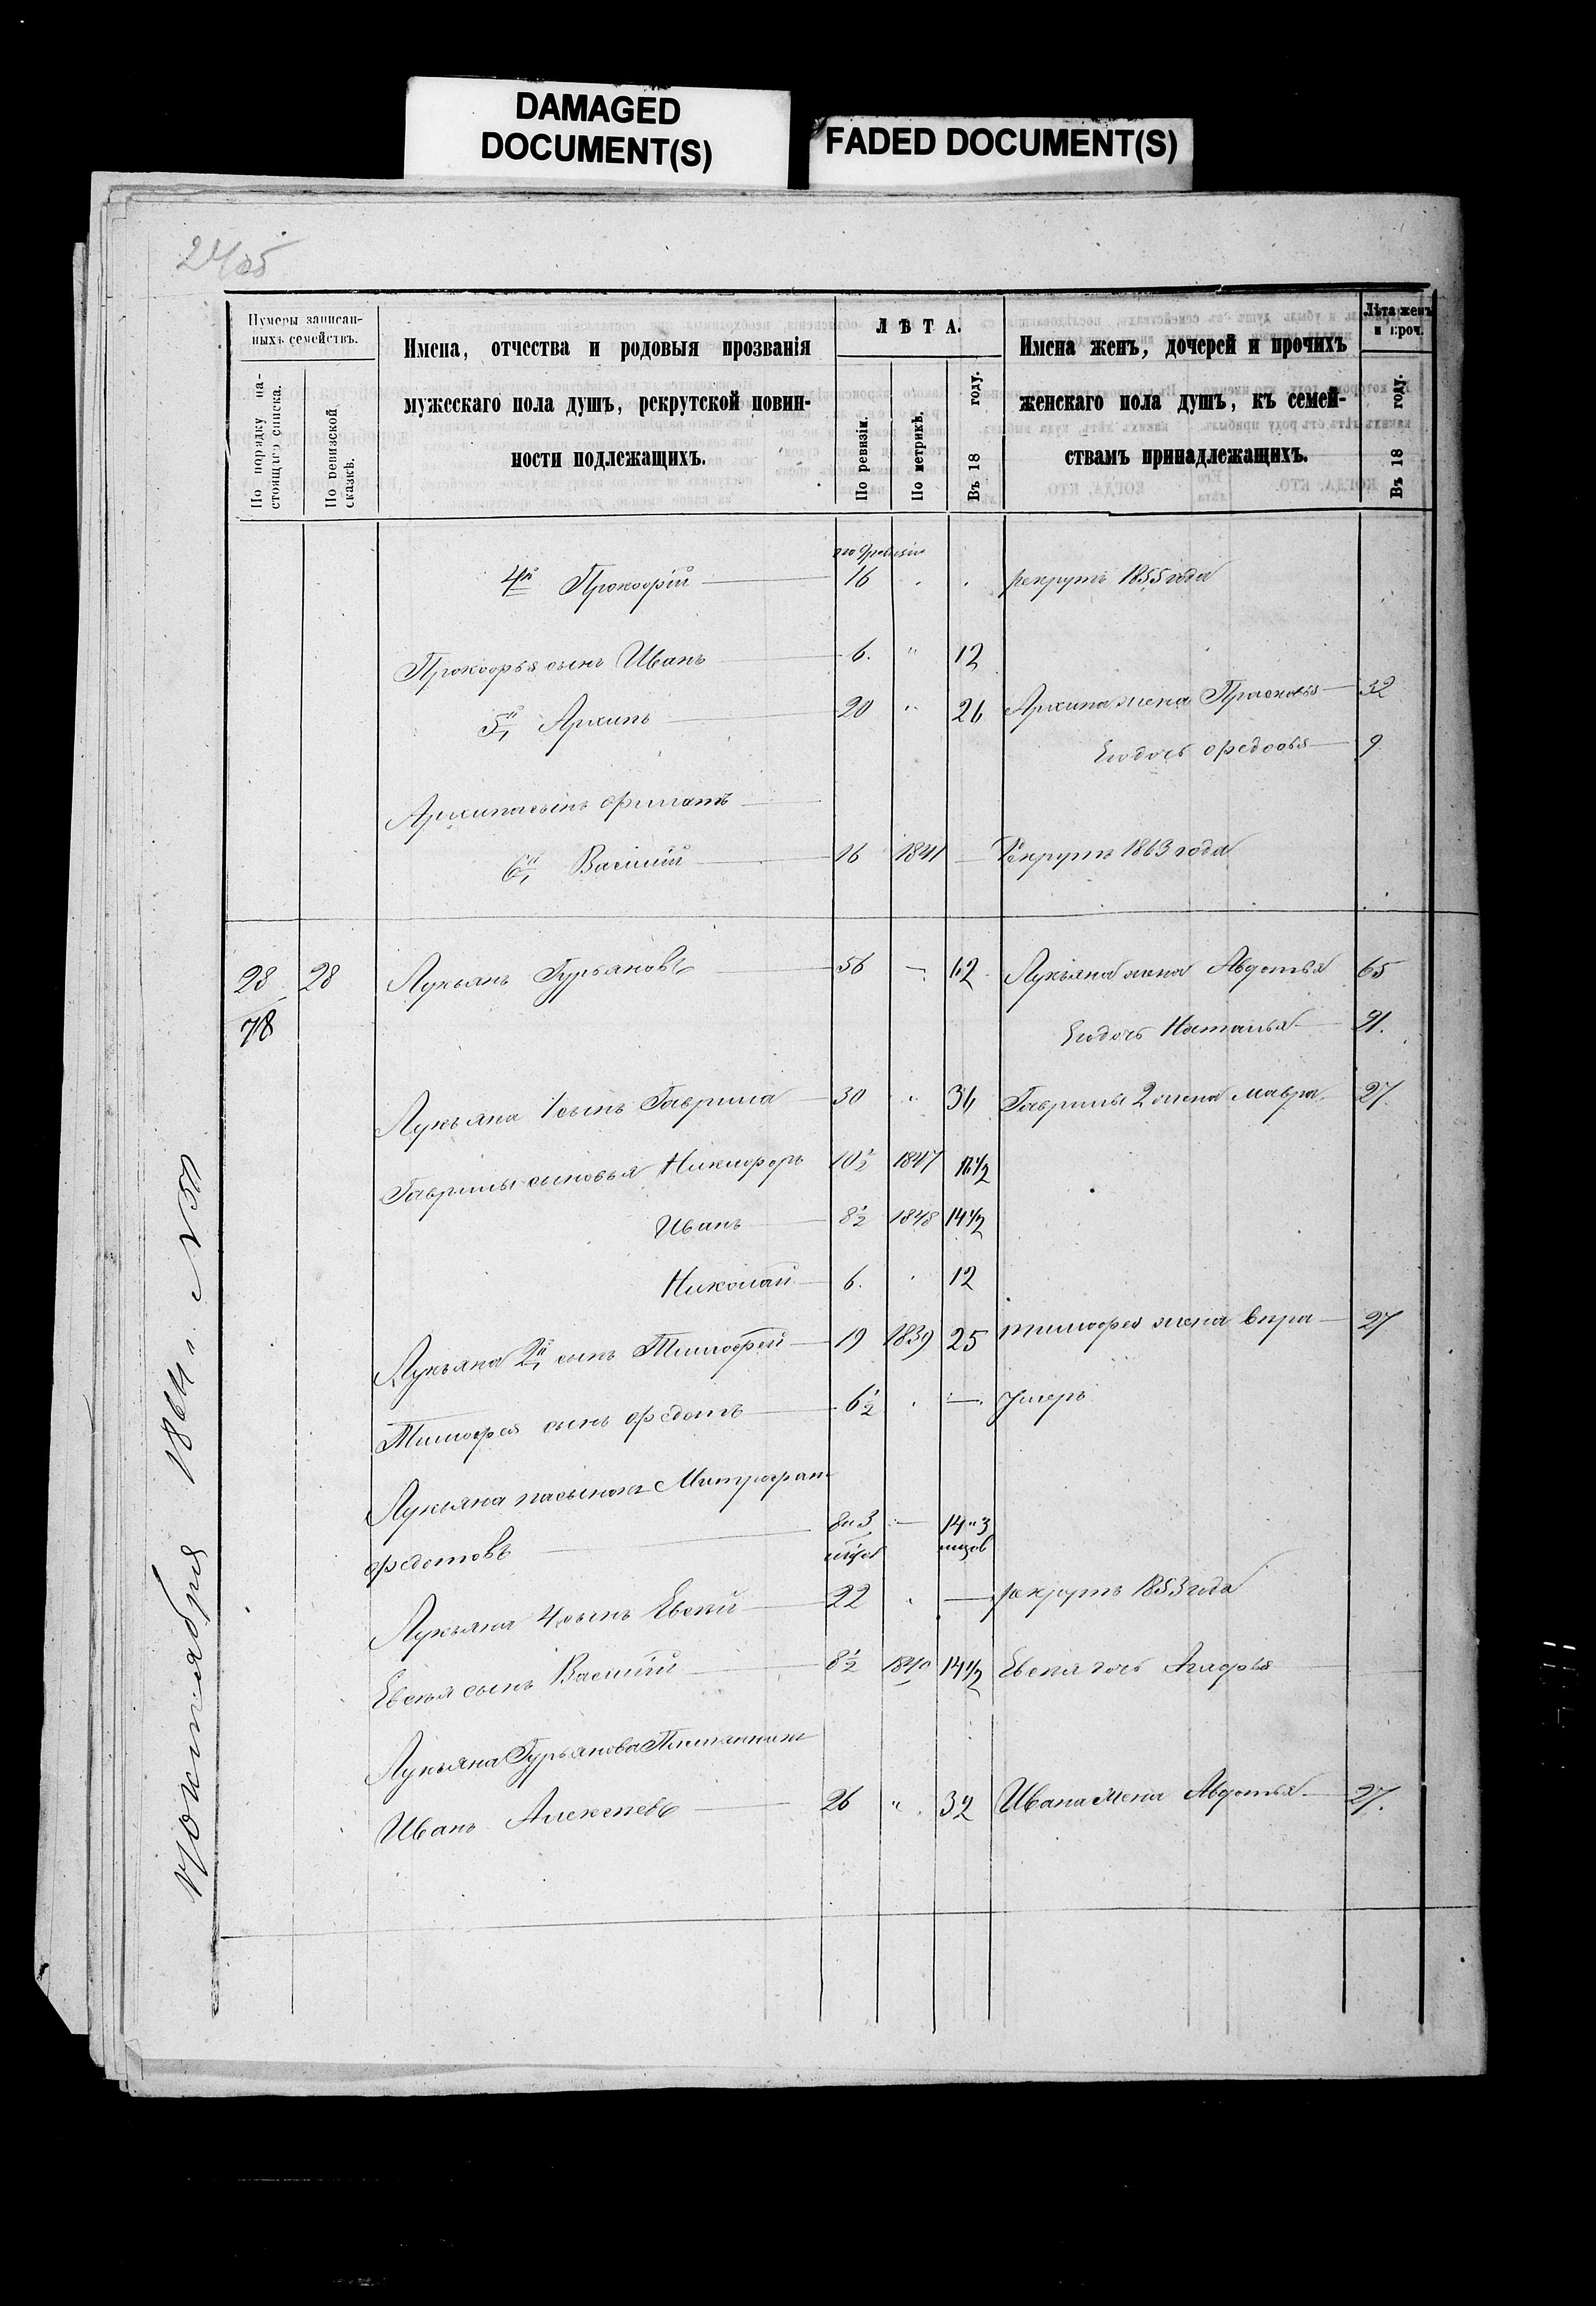 DAMAGED
DOCUMENT(S)
FADED DOCUMENT(S)
Нумеры записан-
ныхъ семействъ.
По порядку на-
стоящаго списка.
По ревизской
сказкѣ.
Имена, отчества и родовыя прозванія
мужескаго пола душъ, рекрутской повин-
ности подлежащихъ.
ЛѢТА.
По ревизіи.
По метрикѣ.
Въ 18 году.
Имена женъ, дочерей и прочихъ
женскаго пола душъ, къ семей-
ствамъ принадлежащихъ.
Лѣта женъ
и проч.
Въ 18 году.
по 9 ревизіи
4й Прокофій 16 рекрутъ 1855 года
Прокофья сынъ Иванъ 6. " 12
5й Архипъ 20 " 26 Архипа жена Прасковья 32
Его дочь Федосья 9
Архипа сынъ Филатъ
6й Василій 16 1841 — Рекрутъ 1863 года
28 28 Лукьянъ Гурьяновъ 56 — 62 Лукьяна жена Авдотья 65
78 Его дочь Наталья 21.
Лукьяна 1 сынъ Гаврила 30 " 36 Гаврилы 2 жена Мавра 27.
Гаврилы сыновья Никифоръ 10½ 1847 16½
Иванъ 8½ 1848 14½
Николай 6. 12
Лукьяна 2й сынъ Тимофей 19 1839 25 Тимофея жена Вѣра 27
Тимофея сынъ Федотъ 6½ — умеръ
Лукьяна пасынокъ Митрофанъ
Федотовъ 8 и 3 — 14 и 3
Лукьяна 4 сынъ Евсѣй 22 — рекрутъ 1853 года
Евсѣя сынъ Василій 8½ 1840 14½ Евсѣя дочь Агафья
Лукьяна Гурьянова Племянникъ
Иванъ Алексѣевъ 26 " 32 Ивана жена Авдотья 27.